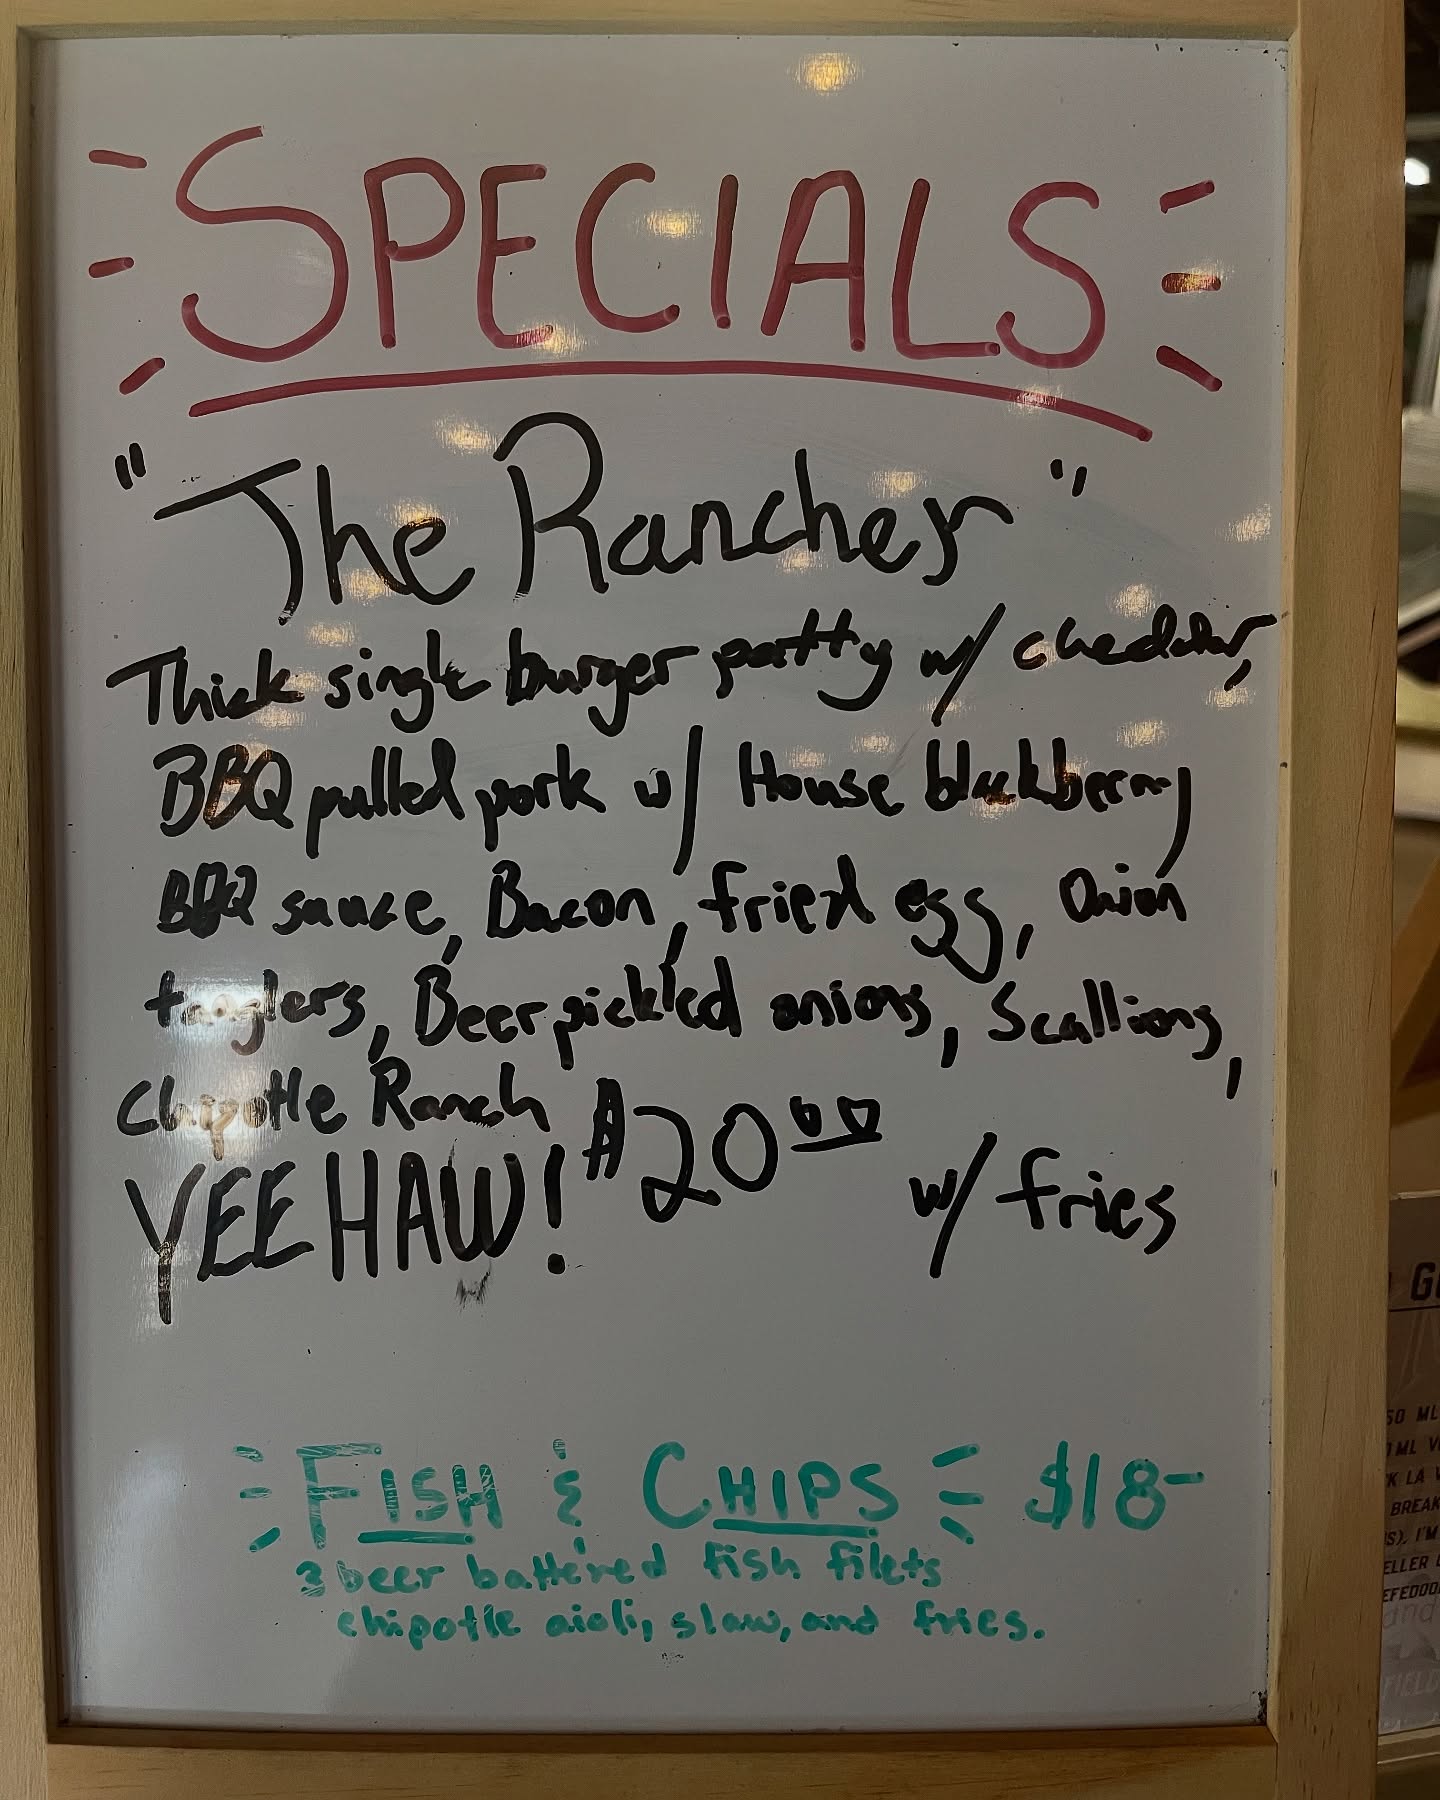 SPECIALS
"The Rancher"
Thick single burger patty w/ cheddar,
BBQ pulled pork w/ House blackberry
BBQ sauce, Bacon, fried egg, Onion
tanglers, Beer pickled onions, Scallions,
Chipotle Ranch
YEEHAW! $20.00 w/ fries
FISH & CHIPS $18-
3 beer battered fish filets
chipotle aioli, slaw, and fries.
50 ML
BREAK
I'M
FIELD